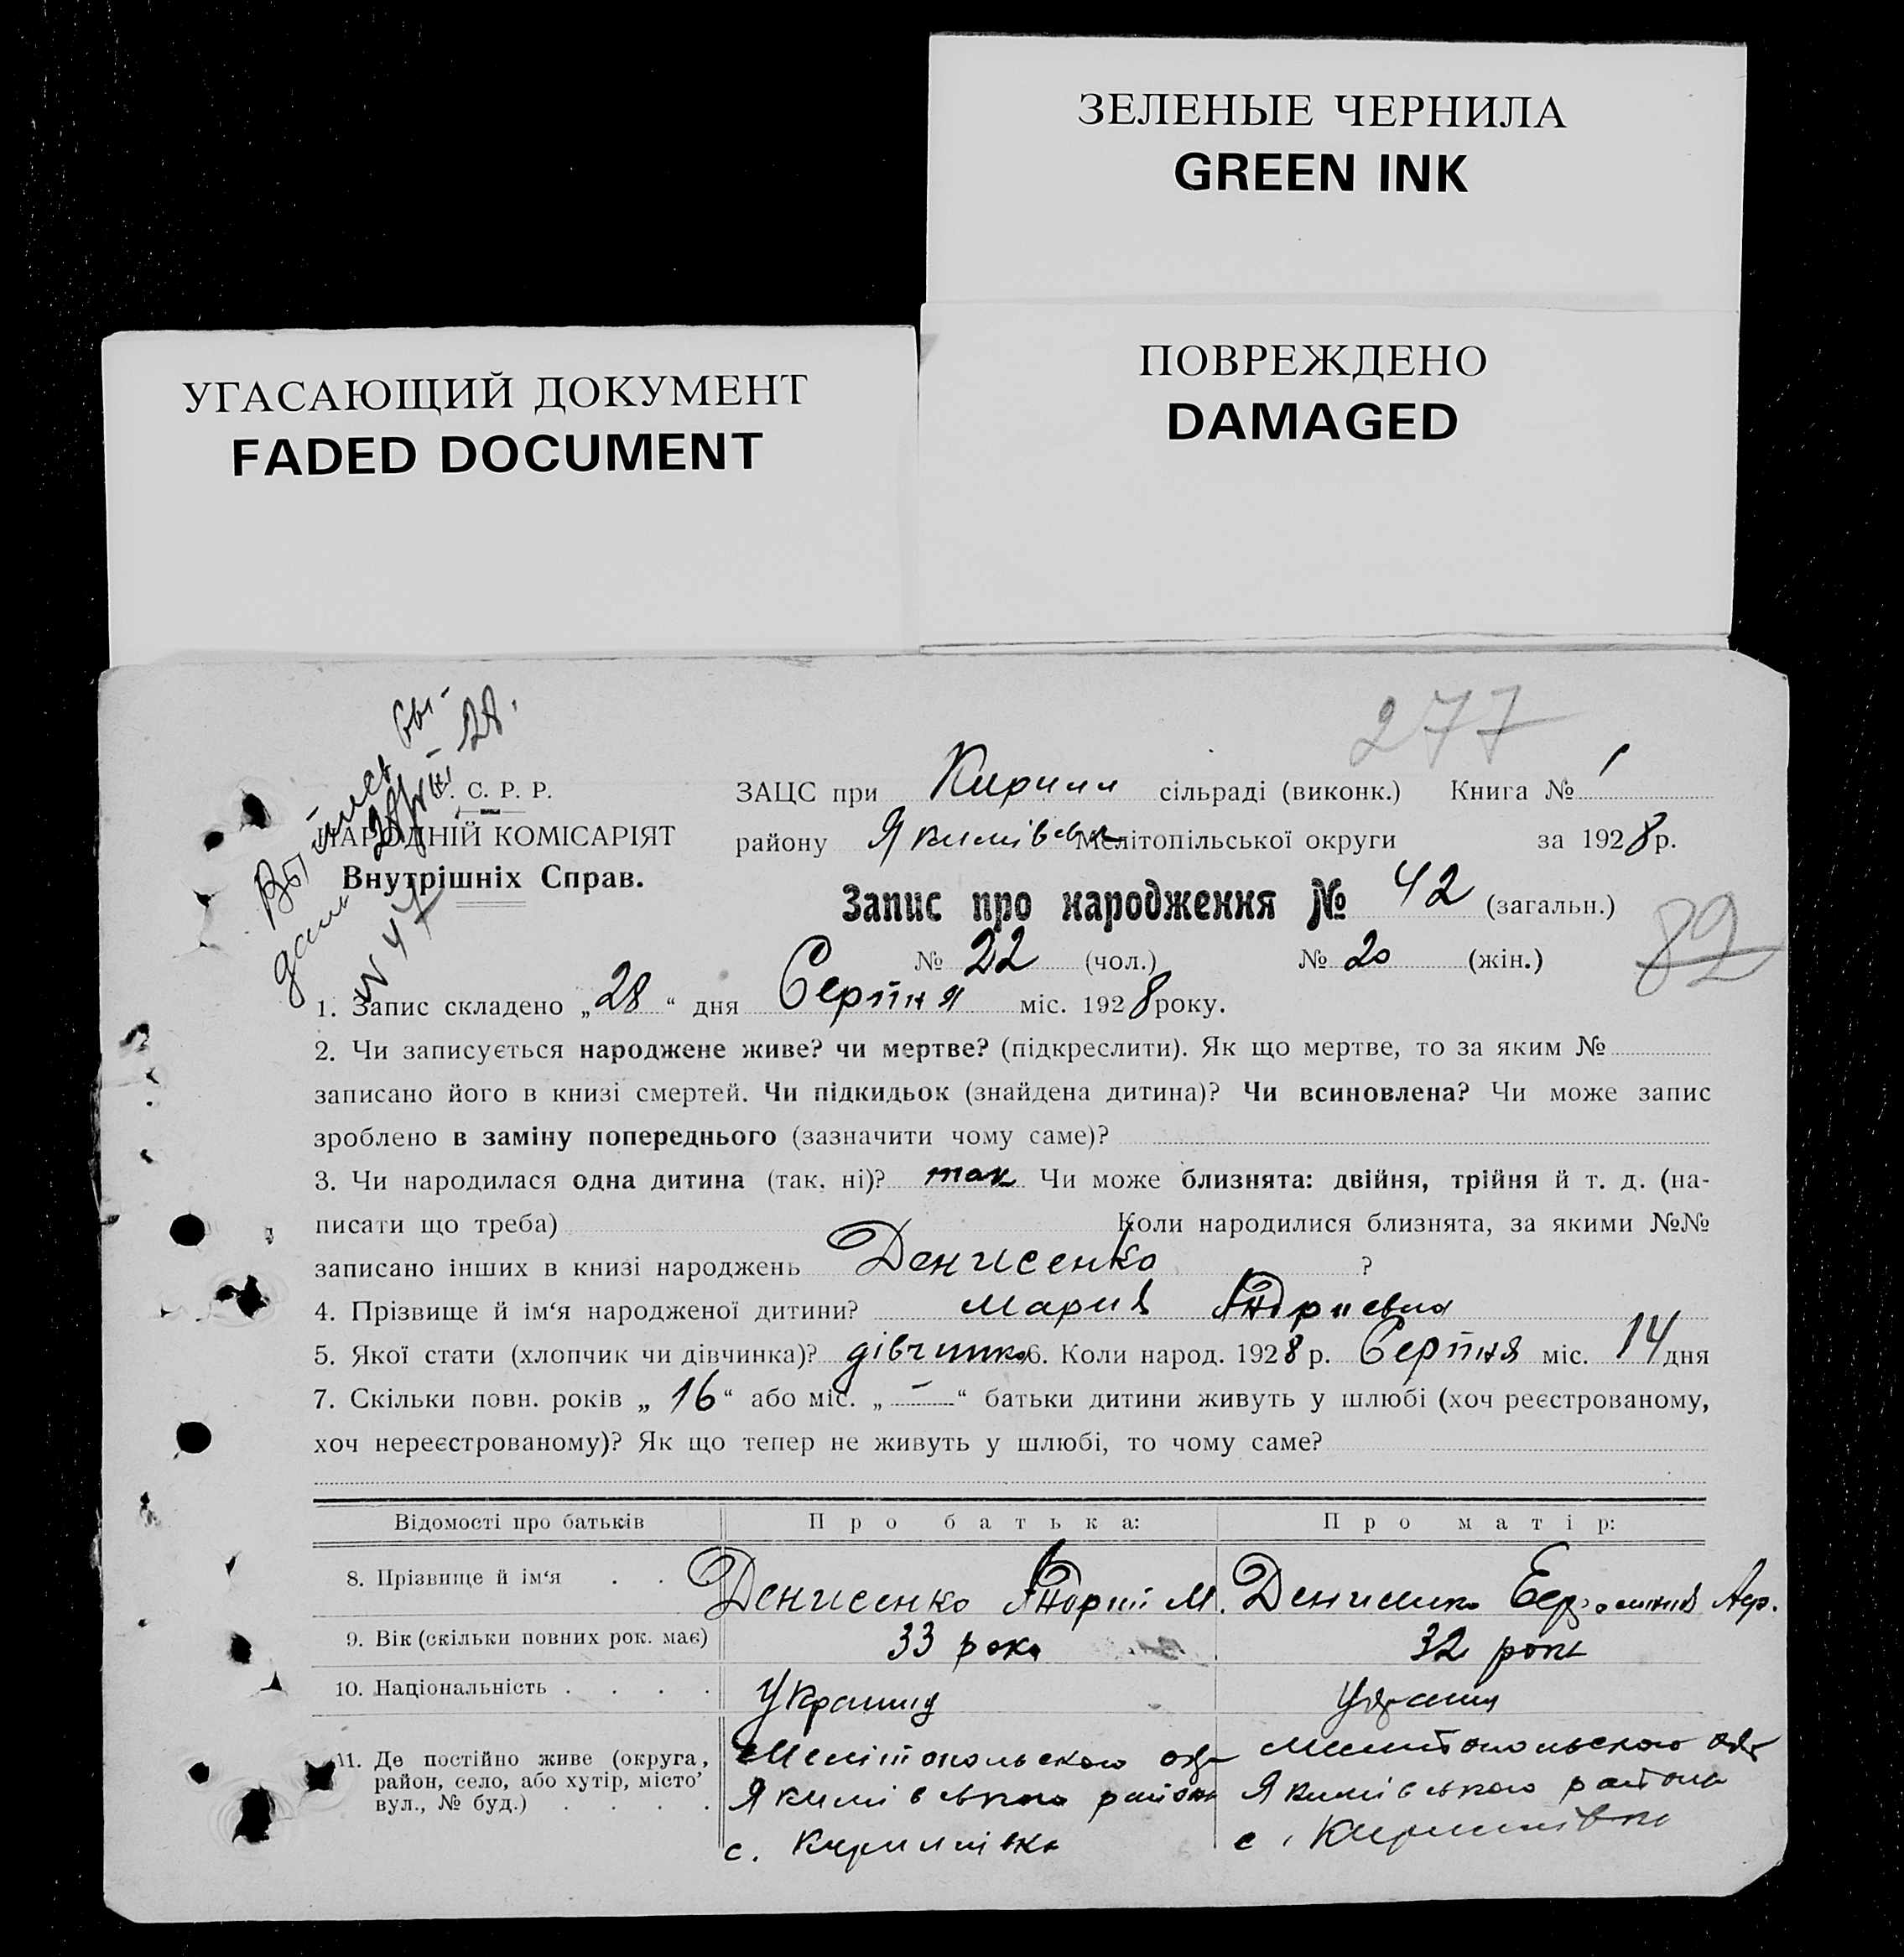 ЗЕЛЕНЫЕ ЧЕРНИЛА
GREEN INK
УГАСАЮЩИЙ ДОКУМЕНТ
FADED DOCUMENT
ПОВРЕЖДЕНО
DAMAGED
277
С. Р. Р.
НАРОДНІЙ КОМІСАРІЯТ
Внутрішніх Справ.
N 47
ЗАЦС при Кирил сільраді (виконк.) Книга № 1
району Якимівськ Мелітопільської округи за 1928 р.
Запис про народження № 42 (загальн.)
№ 22 (чол.) № 20 (жін.)
82
1. Запис складено „28“ дня Серпня міс. 1928 року.
2. Чи записується народжене живе? чи мертве? (підкреслити). Як що мертве, то за яким №
записано його в книзі смертей. Чи підкидьок (знайдена дитина)? Чи всиновлена? Чи може запис
зроблено в заміну попереднього (зазначити чому саме)?
3. Чи народилася одна дитина (так, ні)? так Чи може близнята: двійня, трійня й т. д. (на-
писати що треба) Коли народилися близнята, за якими №№
записано інших в книзі народжень Денисенко ?
4. Прізвище й ім‘я народженої дитини? Мария Андриевна
5. Якої стати (хлопчик чи дівчинка)? дівчинка 6. Коли народ. 1928 р. Серпня міс. 14 дня
7. Скільки повн. років „16“ або міс. „—“ батьки дитини живуть у шлюбі (хоч реєстрованому,
хоч нереєстрованому)? Як що тепер не живуть у шлюбі, то чому саме?
Відомості про батьків Про батька: Про матір:
8. Прізвище й ім‘я . . Денисенко Андрий М. Денисенко
9. Вік (скільки повних рок. має) 33 рока 32 роки
10. Національність . . . .
11. Де постійно живе (округа, Мелітопольського окр Мелитопольского окр
район, село, або хутір, місто, Якимівського района Якимівського района
вул., № буд.) . . . . с. Кирилівка с. Кирилівка